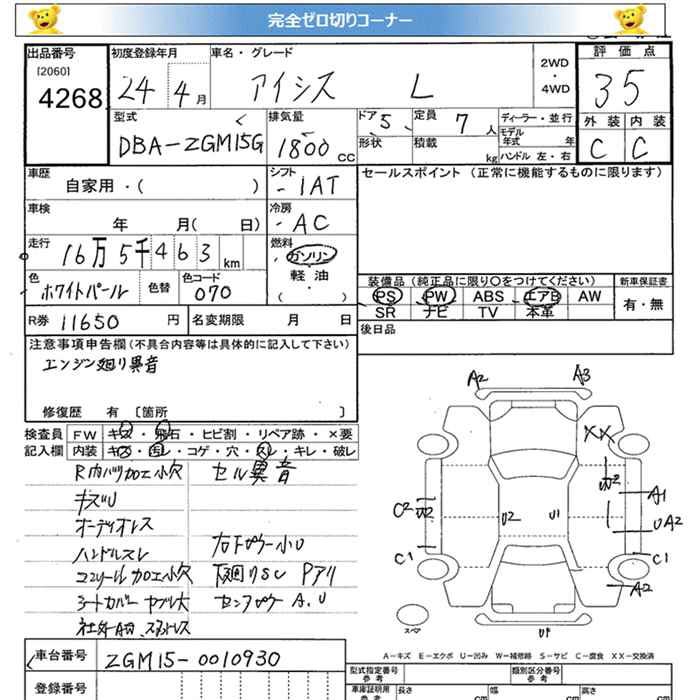 完全ゼロ切りコーナー
出品番号
[2060]
4268
初度登録年月
24 4月
車名・グレード
アイシス L
2WD・4WD
評価点
35
型式
DBA-ZGM15G
排気量
1800 CC
ドア 5
形状
定員 7 人
積載 kg
ディーラー・並行
モデル年式 年
ハンドル 左・右
外装 内装
C C
車歴
自家用・( )
シフト
IAT
セールスポイント (正常に機能するものに限ります)
車検
年 月( 日)
冷房
AC
走行
16万5千463km
燃料
ガソリン
軽油
( )
色
ホワイトパール
色替
色コード
070
装備品 (純正品に限り○をつけてください)
新車保証書
PS PW ABS エアB AW
SR ナビ TV 本革
有・無
R券 11650 円
名変期限 月 日
後日品
注意事項申告欄 (不具合内容等は具体的に記入して下さい)
エンジン廻り異音
修復歴 有 [箇所 ]
検査員記入欄
FW キズ・飛石・ヒビ割・リペア跡・×要
内装 キズ・汚レ・コゲ・穴・スレ・キレ・破レ
R内バツ加工小穴
セル異音
キズU
オーディオレス
ハンドルスレ
右ドアウラ小U
コンソール加工小穴
下廻りSC Pアリ
シートカバー ヤブレ大
A.U
社外AW
A2 A3
XX
U2
C2 U2
U2 U1
A1
UA2
C1
C1
A2
スペア
U1
A-キズ E-エクボ U-凹み W-補修跡 S-サビ C-腐食 XX-交換済
車台番号
ZGM15-0010930
登録番号
型式指定番号
参考
類別区分番号
参考
車庫証明用
参考
長さ cm
幅 cm
高さ cm